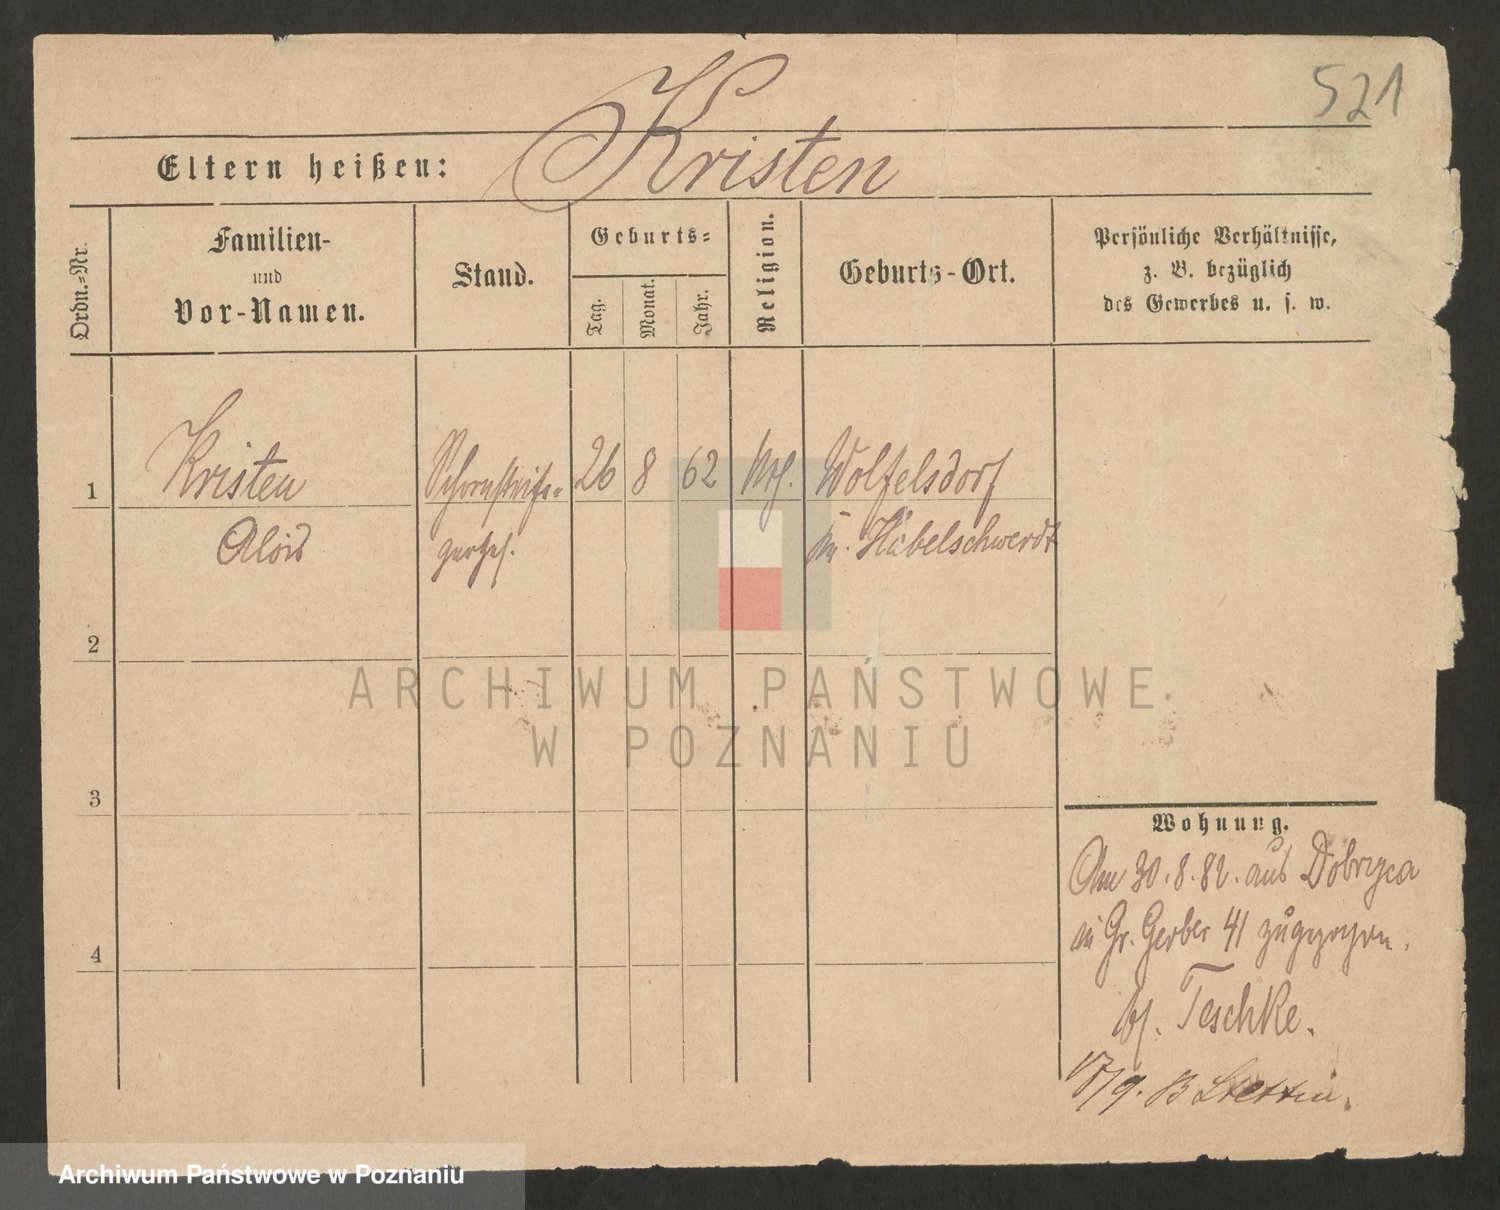 521
Kristen
Eltern heißen:
Ordn.-Nr.
Familien-
und
Vor-Namen.
Stand.
Geburts-
Tag.
Monat.
Jahr.
Religion.
Geburts-Ort.
Persönliche Verhältnisse,
z. B. bezüglich
des Gewerbes u. s. w.
1
Kristen
Alois
Schornsteinfe-
gerges.
26
8
62
kth.
Wolfelsdorf
Kr. Habelschwerdt
2
3
4
Wohnung.
Am 30.8.82. aus Dobrzyca
in Gr. Gerber 41 zugezogen.
bei Teschke.
/9. Stettin.
ARCHIWUM PAŃSTWOWE
W POZNANIU
Archiwum Państwowe w Poznaniu